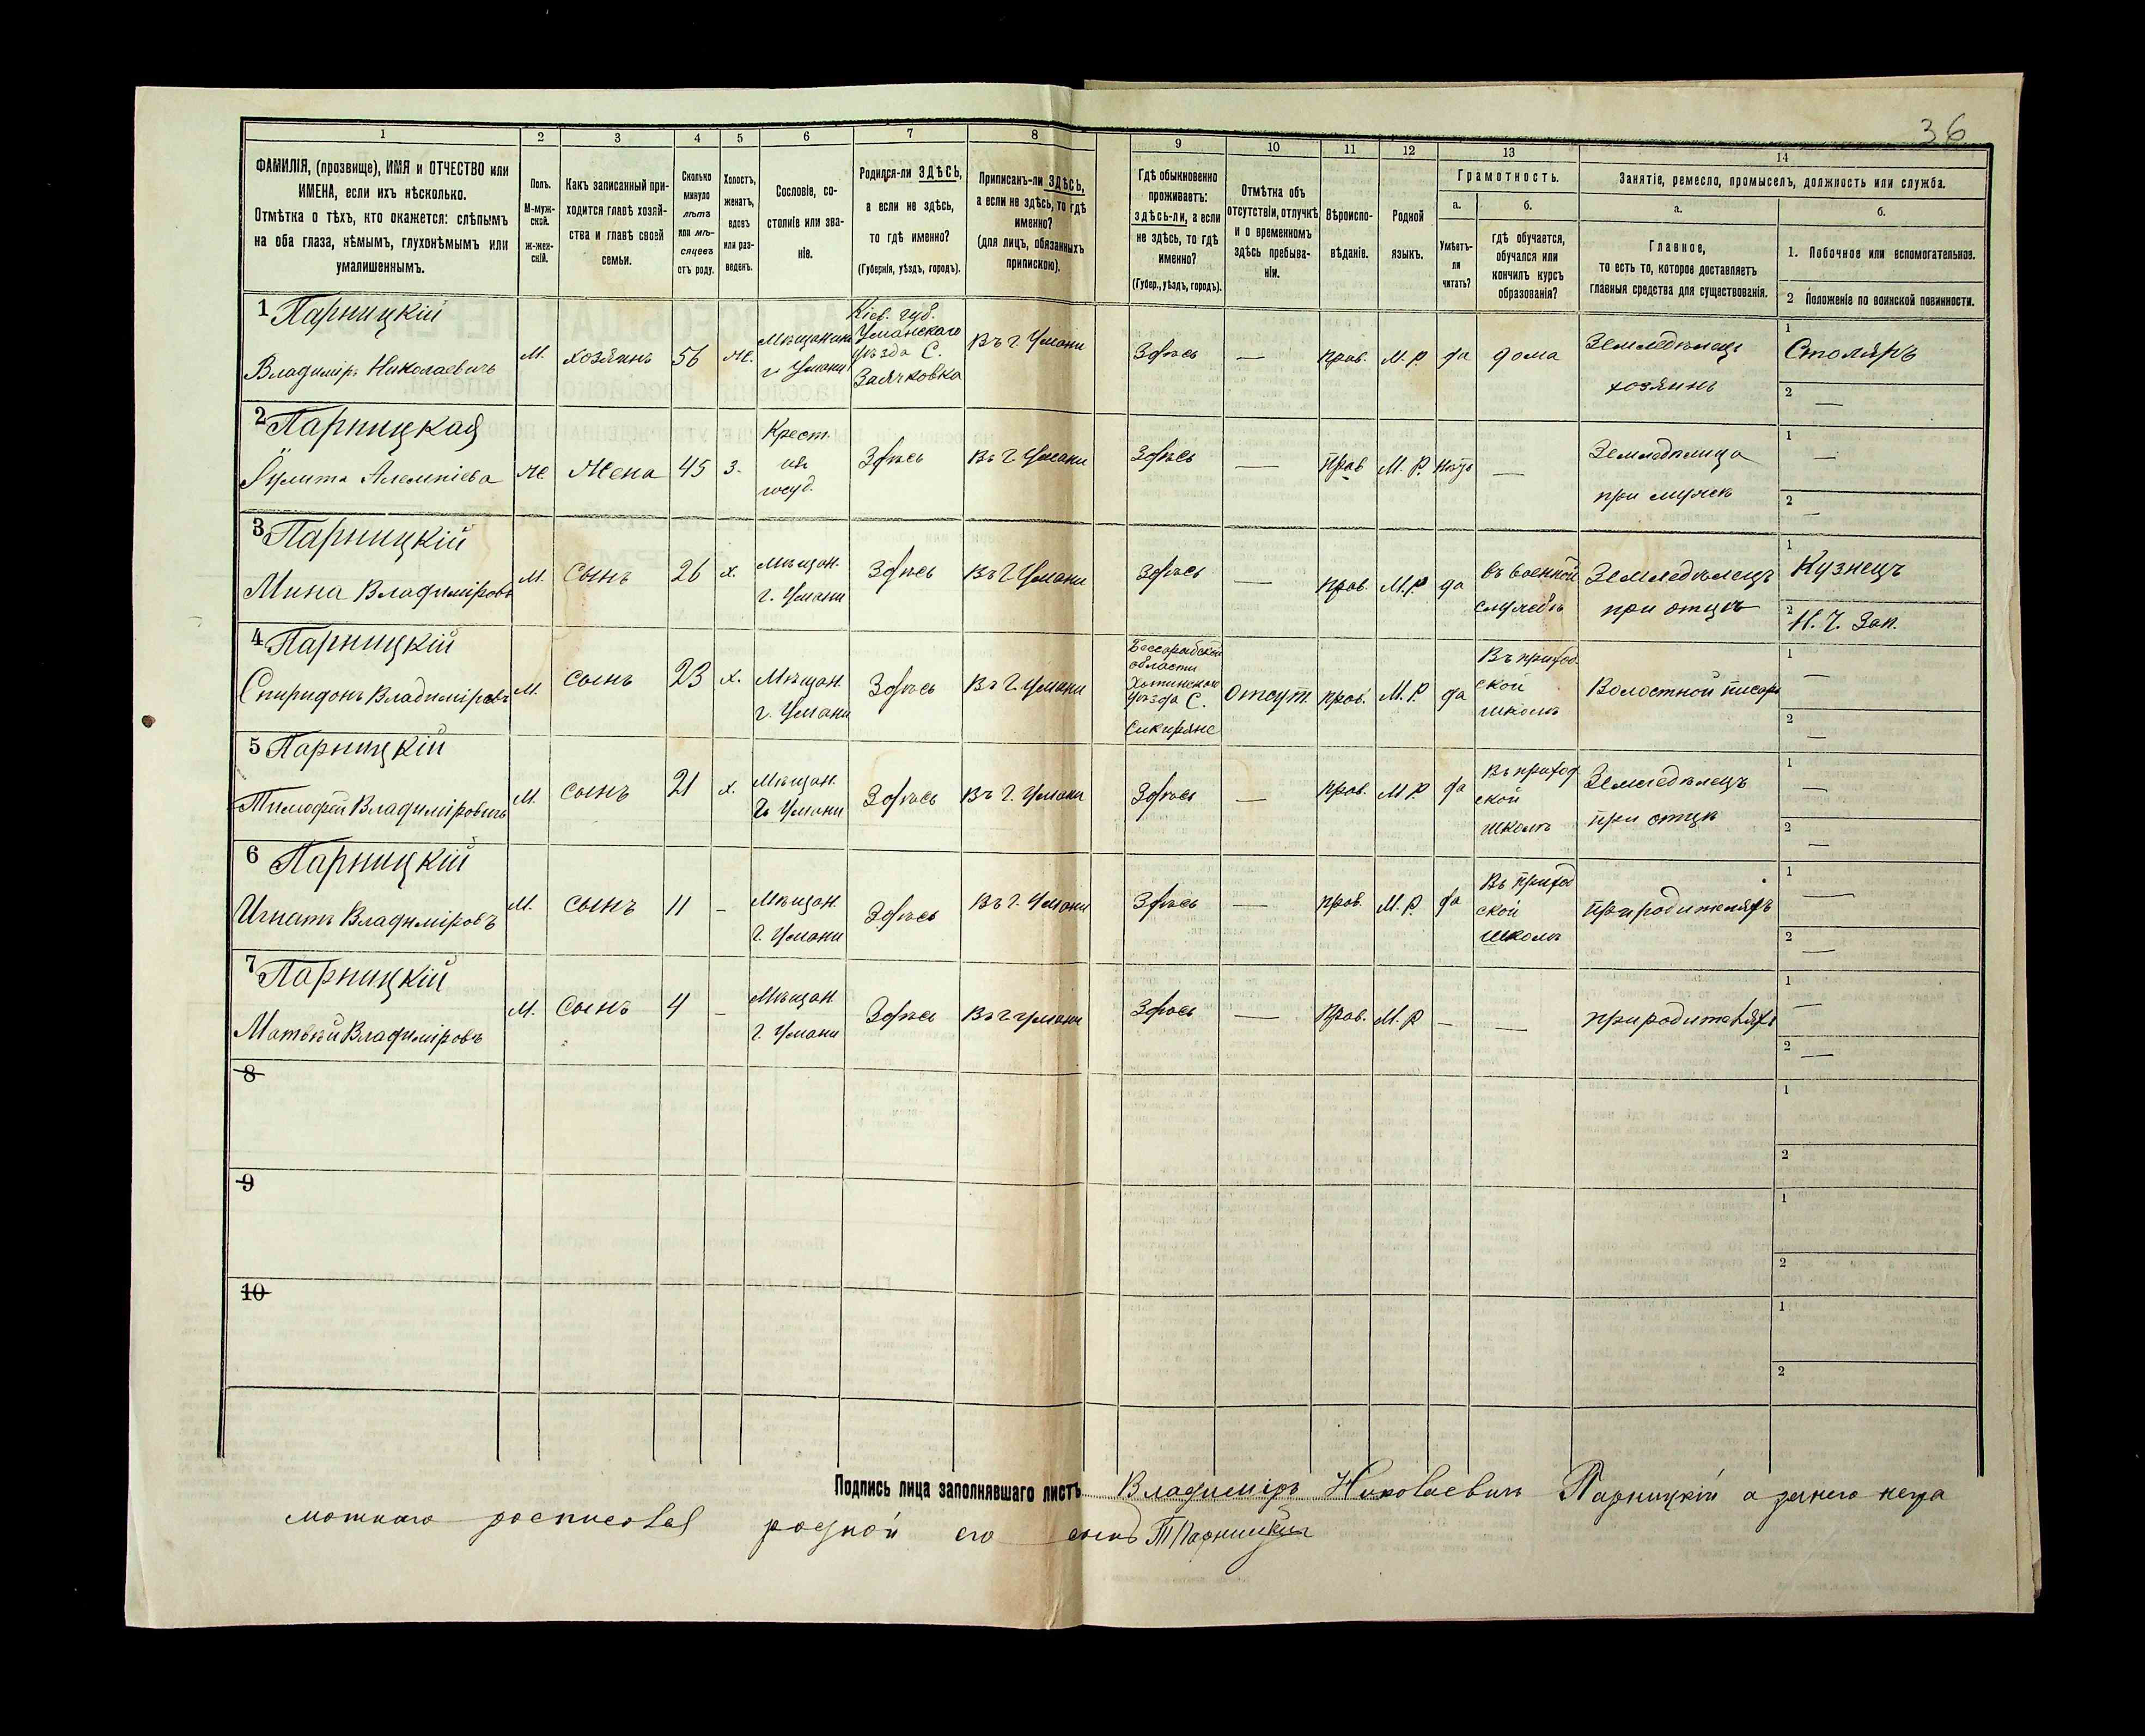 36
1 2 3 4 5 6 7 8 9 10 11 12 13 14
ФАМИЛІЯ, (прозвище), ИМЯ и ОТЧЕСТВО или
ИМЕНА, если ихъ нѣсколько.
Отмѣтка о тѣхъ, кто окажется: слѣпымъ
на оба глаза, нѣмымъ, глухонѣмымъ или
умалишеннымъ.
Полъ.
М-муж-
ской.
ж-жен-
скій.
Какъ записанный при-
ходится главѣ хозяй-
ства и главѣ своей
семьи.
Сколько
минуло
лѣтъ
или мѣ-
сяцевъ
отъ роду.
Холостъ,
женатъ,
вдовъ
или раз-
веденъ.
Сословіе, со-
стояніе или зва-
ніе.
Родился-ли ЗДѢСЬ,
а если не здѣсь,
то гдѣ именно?
(Губернія, уѣздъ, городъ).
Приписанъ-ли ЗДѢСЬ,
а если не здѣсь, то гдѣ
именно?
(для лицъ, обязанныхъ
припискою).
Гдѣ обыкновенно
проживаетъ:
здѣсь-ли, а если
не здѣсь, то гдѣ
именно?
(Губер., уѣздъ, городъ).
Отмѣтка объ
отсутствіи, отлучкѣ
и о временномъ
здѣсь пребыва-
ніи.
Вѣроиспо-
вѣданіе.
Родной
языкъ.
Грамотность.
а.
Умѣетъ-
ли
читать?
б.
гдѣ обучается,
обучался или
кончилъ курсъ
образованія?
Занятіе, ремесло, промыселъ, должность или служба.
а.
Главное,
то есть то, которое доставляетъ
главныя средства для существованія.
б.
1. Побочное или вспомогательное.
2 Положеніе по воинской повинности.
1 Парницкій
Владиміръ Николаевичъ
М.
хозяинъ
56
ж.
Мѣщанинъ
г. Умани
Кіев. губ.
Уманскаго
уѣзда С.
Заячковка
Въ г. Умани
Здѣсь
—
прав.
М. Р.
да
дома
Земледѣлецъ
хозяинъ
1
Столяръ
2
—
2 Парницкая
Іулита
ж.
Жена
45
з.
Крест.
изъ
госуд.
Здѣсь
Въ г. Умани
Здѣсь
—
Прав
М. Р.
нѣтъ
—
Земледѣлица
при мужѣ
1
—
2
—
3 Парницкій
Мина Владиміровъ
М.
Сынъ
26
х.
Мѣщан.
г. Умани
Здѣсь
Въ г. Умани
Здѣсь
—
прав.
М. Р.
да
въ военной
службѣ
Земледѣлецъ
при отцѣ
1
Кузнецъ
2
Н. Ч. Зап.
4 Парницкій
Спиридонъ Владиміровъ
М.
сынъ
23
х.
Мѣщан.
г. Умани
Здѣсь
Въ г. Умани
Бессарабской
области
Хотинскаго
уѣзда С.
Сикиряне
Отсут.
прав.
М. Р.
да
Въ приход
ской
школѣ
Волостной писарь
1
—
2
—
5 Парницкій
Тимофей Владиміровичъ
М.
сынъ
21
х.
Мѣщан.
г. Умани
Здѣсь
Въ г. Умани
Здѣсь
—
прав.
М. Р.
да
Въ приход
ской
школѣ
Земледѣлецъ
при отцѣ
1
—
2
—
6 Парницкій
Игнатъ Владиміровъ
М.
сынъ
11
–
Мѣщан.
г. Умани
Здѣсь
Въ г. Умани
Здѣсь
—
прав.
М. Р.
да
Въ приход
ской
школѣ
при родителяхъ
1
—
2
—
7 Парницкій
Матвѣй Владиміровъ
М.
сынъ
4
–
Мѣщан.
г. Умани
Здѣсь
Въ г. Умани
Здѣсь
—
Прав.
М. Р
–
—
при родителяхъ
1
—
2
—
8
1
2
9
1
2
10
1
2
Подпись лица заполнявшаго листъ Владиміръ Николаевичъ Парницкій а занего негра
мотнаго росписался родной его сынъ Т Парницкій